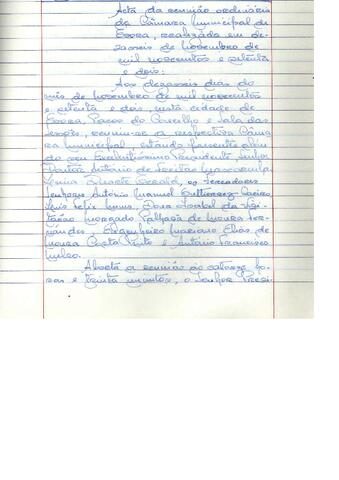 Acta da reunião ordinária
da Câmara Municipal de
Évora, realizada em de-
zasseis de Novembro de
mil novecentos e setenta
e dois:
Aos dezasseis dias do
mês de Novembro de mil novecentos
e setenta e dois, nesta cidade de
Évora, Paços do Concelho e Sala das
Sessões, reuniu-se a respectiva Câma-
ra Municipal, estando presentes além
do seu Excelentíssimo Presidente, Senhor
Doutor António de Freitas Mascarenhas
Duarte os Vereadores
Senhores António Manuel
Luís Félix Dona Isabel da Visi-
tação Morgado de Moura Fer-
nandes, Engenheiro Mariano Elias de
Moura Costa Pinto e António Francisco
Aberta a reunião às catorze ho-
ras e trinta minutos, o Senhor Presi-